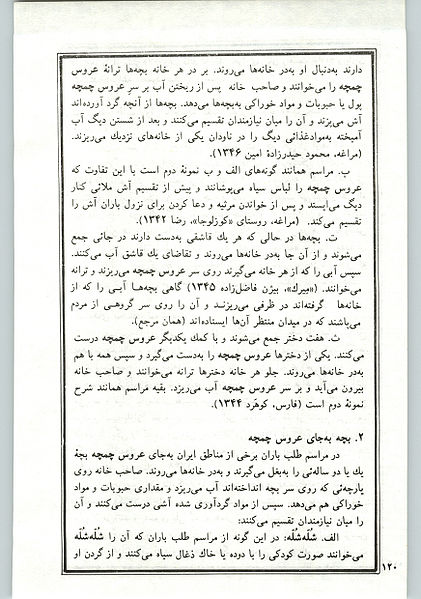 دارند به‌دنبال او به‌در خانه‌ها می‌روند. بر در هر خانه بچه‌ها ترانهٔ عروس
چمچه را می‌خوانند و صاحب خانه پس از ریختن آب بر سر عروس چمچه
پول یا حبوبات و مواد خوراکی به‌بچه‌ها می‌دهد. بچه‌ها از آنچه گرد آورده‌اند
آش می‌پزند و آن را میان نیازمندان تقسیم می‌کنند و بعد از شستن دیگ آب
آمیخته به‌موادغذائی دیگ را در ناودان یکی از خانه‌های نزدیک می‌ریزند.
(مراغه، محمود حیدرزادهٔ امین ۱۳۴۶).
پ. مراسم همانند گونه‌های الف و ب نمونهٔ دوم است با این تفاوت که
عروس چمچه را لباس سیاه می‌پوشانند و پیش از تقسیم آش ملائی کنار
دیگ می‌ایستد و پس از خواندن مرثیه و دعا کردن برای نزول باران آش را
تقسیم می‌کند. (مراغه، روستای «کوزلوجا»، رضا ۱۳۴۲).
ت. بچه‌ها در حالی که هر یك قاشقی به‌دست دارند در جائی جمع
می‌شوند و از آن جا به‌در خانه‌ها می‌روند و تقاضای یك قاشق آب می‌کنند.
سپس آبی را که از هر خانه می‌گیرند روی سر عروس چمچه می‌ریزند و ترانه
می‌خوانند. («میرك»، بیژن فاضل‌زاده ۱۳۴۵) گاهی بچه‌هـا آبـی را که از
خانه‌ها گرفته‌اند در ظرفی می‌ریزنـد و آن را روی سر گروهـی از مردم
می‌پاشند که در میدان منتظر آن‌ها ایستاده‌اند (همان مرجع).
ث. هفت دختر جمع می‌شوند و با کمك یکدیگر عروس چمچه درست
می‌کنند. یکی از دخترها عروس چمچه را به‌دست می‌گیرد و سپس همه با هم
به‌در خانه‌ها می‌روند. جلو هر خانه دخترها ترانه می‌خوانند و صاحب خانه
بیرون می‌آید و بر سر عروس چمچه آب می‌ریزد. بقیه مراسم همانند شرح
نمونهٔ دوم است (فارس، کوهَرد ۱۳۴۴).
۲. بچه به‌جای عروس چمچه
در مراسم طلب باران برخی از مناطق ایران به‌جای عروس چمچه بچهٔ
یك یا دو ساله‌ئی را به‌بغل می‌گیرند و به‌در خانه‌ها می‌روند. صاحب خانه روی
پارچه‌ئی که روی سر بچه انداخته‌اند آب می‌ریزد و مقداری حبوبات و مواد
خوراکی هم می‌دهد. سپس از مواد گردآوری شده آشی درست می‌کنند و آن
را میان نیازمندان تقسیم می‌کنند:
الف. شُلّه‌شُلّه: در این گونه از مراسم طلب باران که آن را شُلّه‌شُلّه
می‌خوانند صورت کودکی را با دوده یا خاك ذغال سیاه می‌کنند و از گردن او
۱۲۰